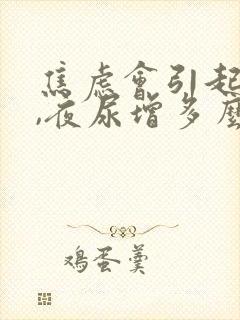 焦虑会引起
,夜尿增多麼
鸡蛋羹